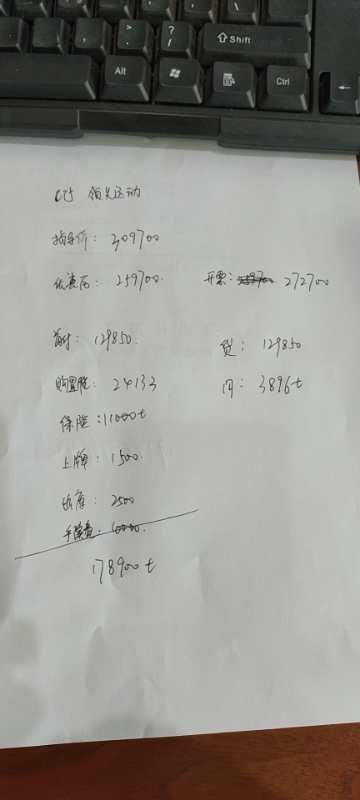 < > . ? / ⇧ Shift
Alt Ctrl
CT5 领先运动
指导价: 309700
优惠后: 259700. 开票: 272700
首付: 129850. 贷: 129850
购置税: 24133 月: 3896t
保险: 11000t
上牌: 1500.
出库: 2500
手续费:
178900t